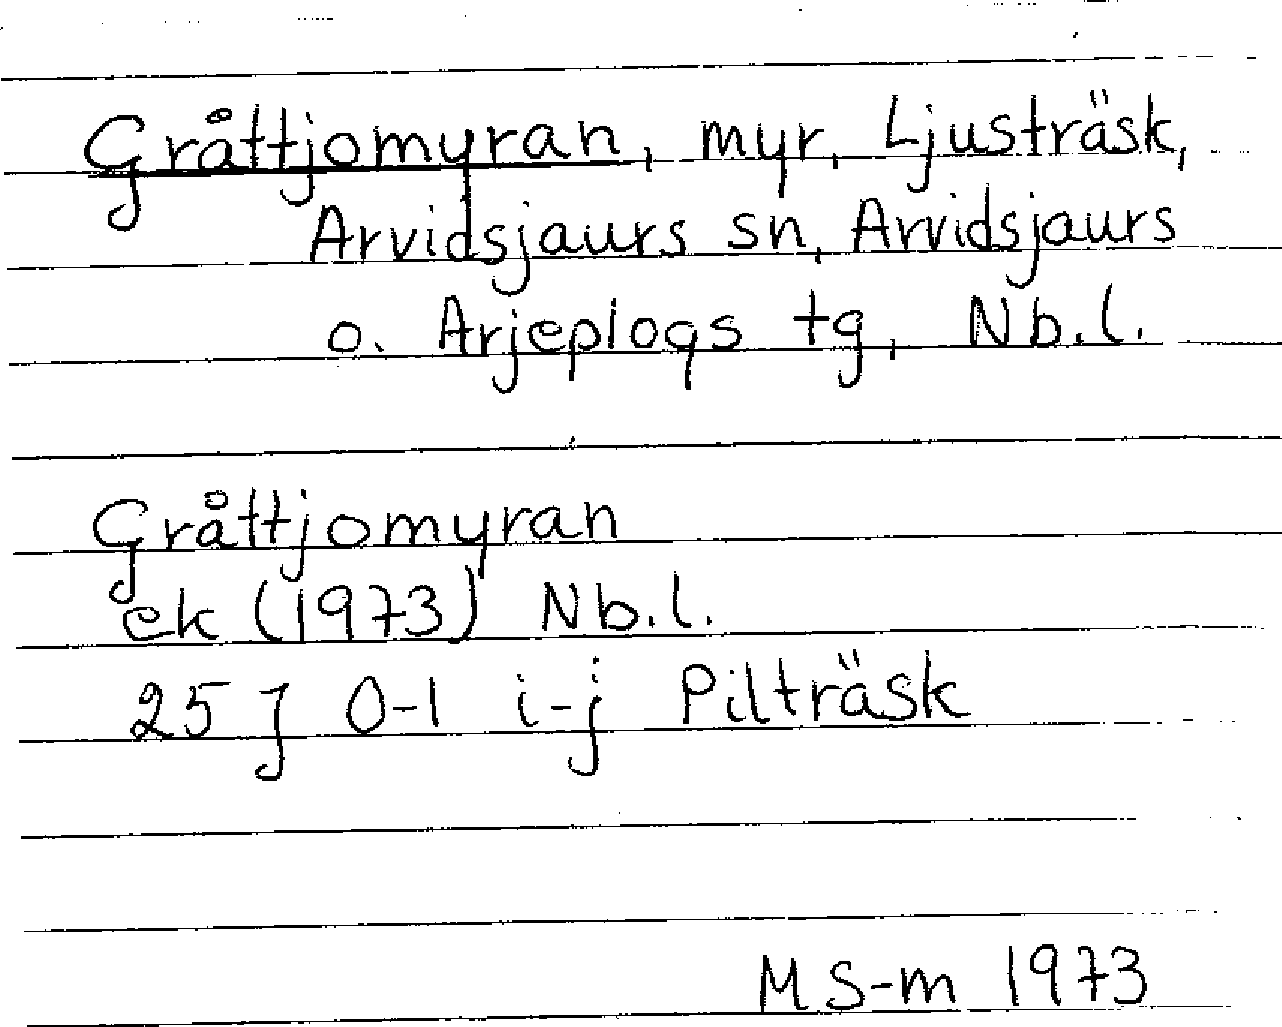 Gråttjomyran, myr, Ljusträsk,
Arvidsjaurs sn, Arvidsjaurs
o. Arjeplogs tg, Nb.l.
Gråttjomyran
ek (1973) Nb.l.
25 J 0-1 i-j Pilträsk
M S-m 1973